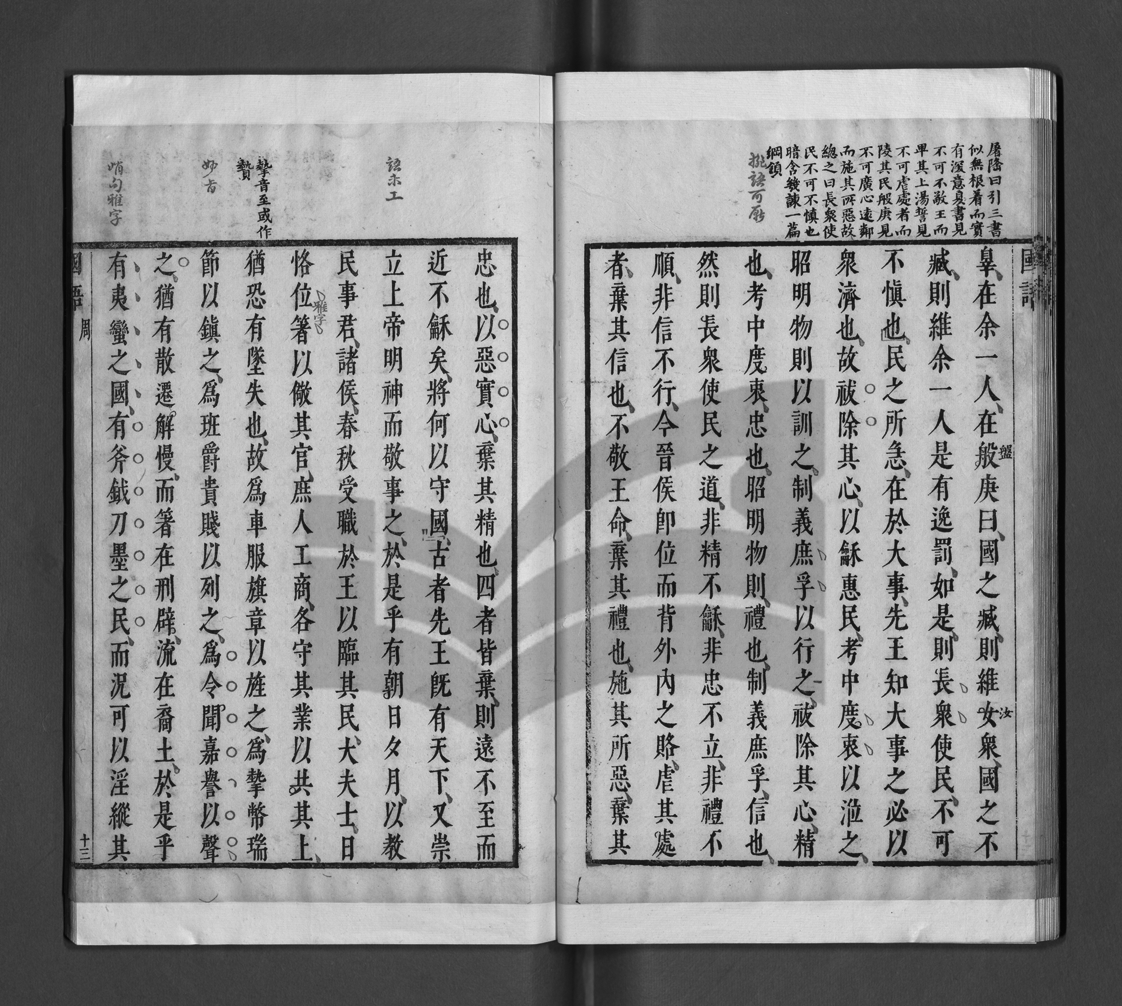 屠隆曰引三書
似無根着而實
有深意夏書見
不可不敬王而
卑其上湯誓見
不可虐處者而
陵其民般庚見
不可廣心遠鄰
而施其所惡故
總之曰長衆使
民不可不慎也
暗含幾諫一篇
綱領
國語
辠在余一人在般庚曰國之臧則維女衆國之不
盤
汝
臧則維余一人是有逸罰如是則長衆使民不可
不慎也民之所急在於大事先王知大事之必以
衆濟也故祓除其心以龢惠民考中度衷以涖之
昭明物則以訓之制義庶孚以行之祓除其心精
也考中度衷忠也昭明物則禮也制義庶孚信也
然則長衆使民之道非精不龢非忠不立非禮不
順非信不行今晉侯卽位而背外內之賂虐其處
者棄其信也不敬王命棄其禮也施其所惡棄其
忠也以惡實心棄其精也四者皆棄則遠不至而
近不龢矣將何以守國古者先王旣有天下又崇
語亦工
立上帝明神而敬事之於是乎有朝日夕月以教
民事君諸侯春秋受職於王以臨其民大夫士日
恪位箸以儆其官庶人工商各守其業以共其上
雅字
摯音至或作
贄
猶恐有墜失也故爲車服旗章以旌之爲摯幣瑞
節以鎮之爲班爵貴賤以列之爲令聞嘉譽以聲
之猶有散遷解慢而箸在刑辟流在裔土於是乎
句雅字
有夷蠻之國有斧鉞刀墨之民而況可以淫縱其
國語
周
十三